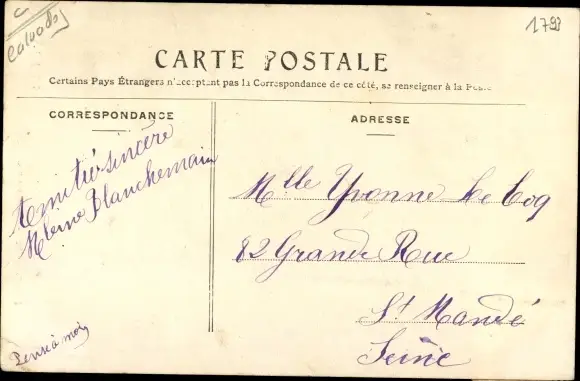 C
Calvados
1793
CARTE POSTALE
Certains Pays Étrangers n'acceptent pas la Correspondance de ce côté, se renseigner à la Poste
CORRESPONDANCE
Amitié sincère
Blanchemain
Pense à moi
ADRESSE
Mlle Yvonne Le Coq
82 Grande Rue
St Mandé
Seine